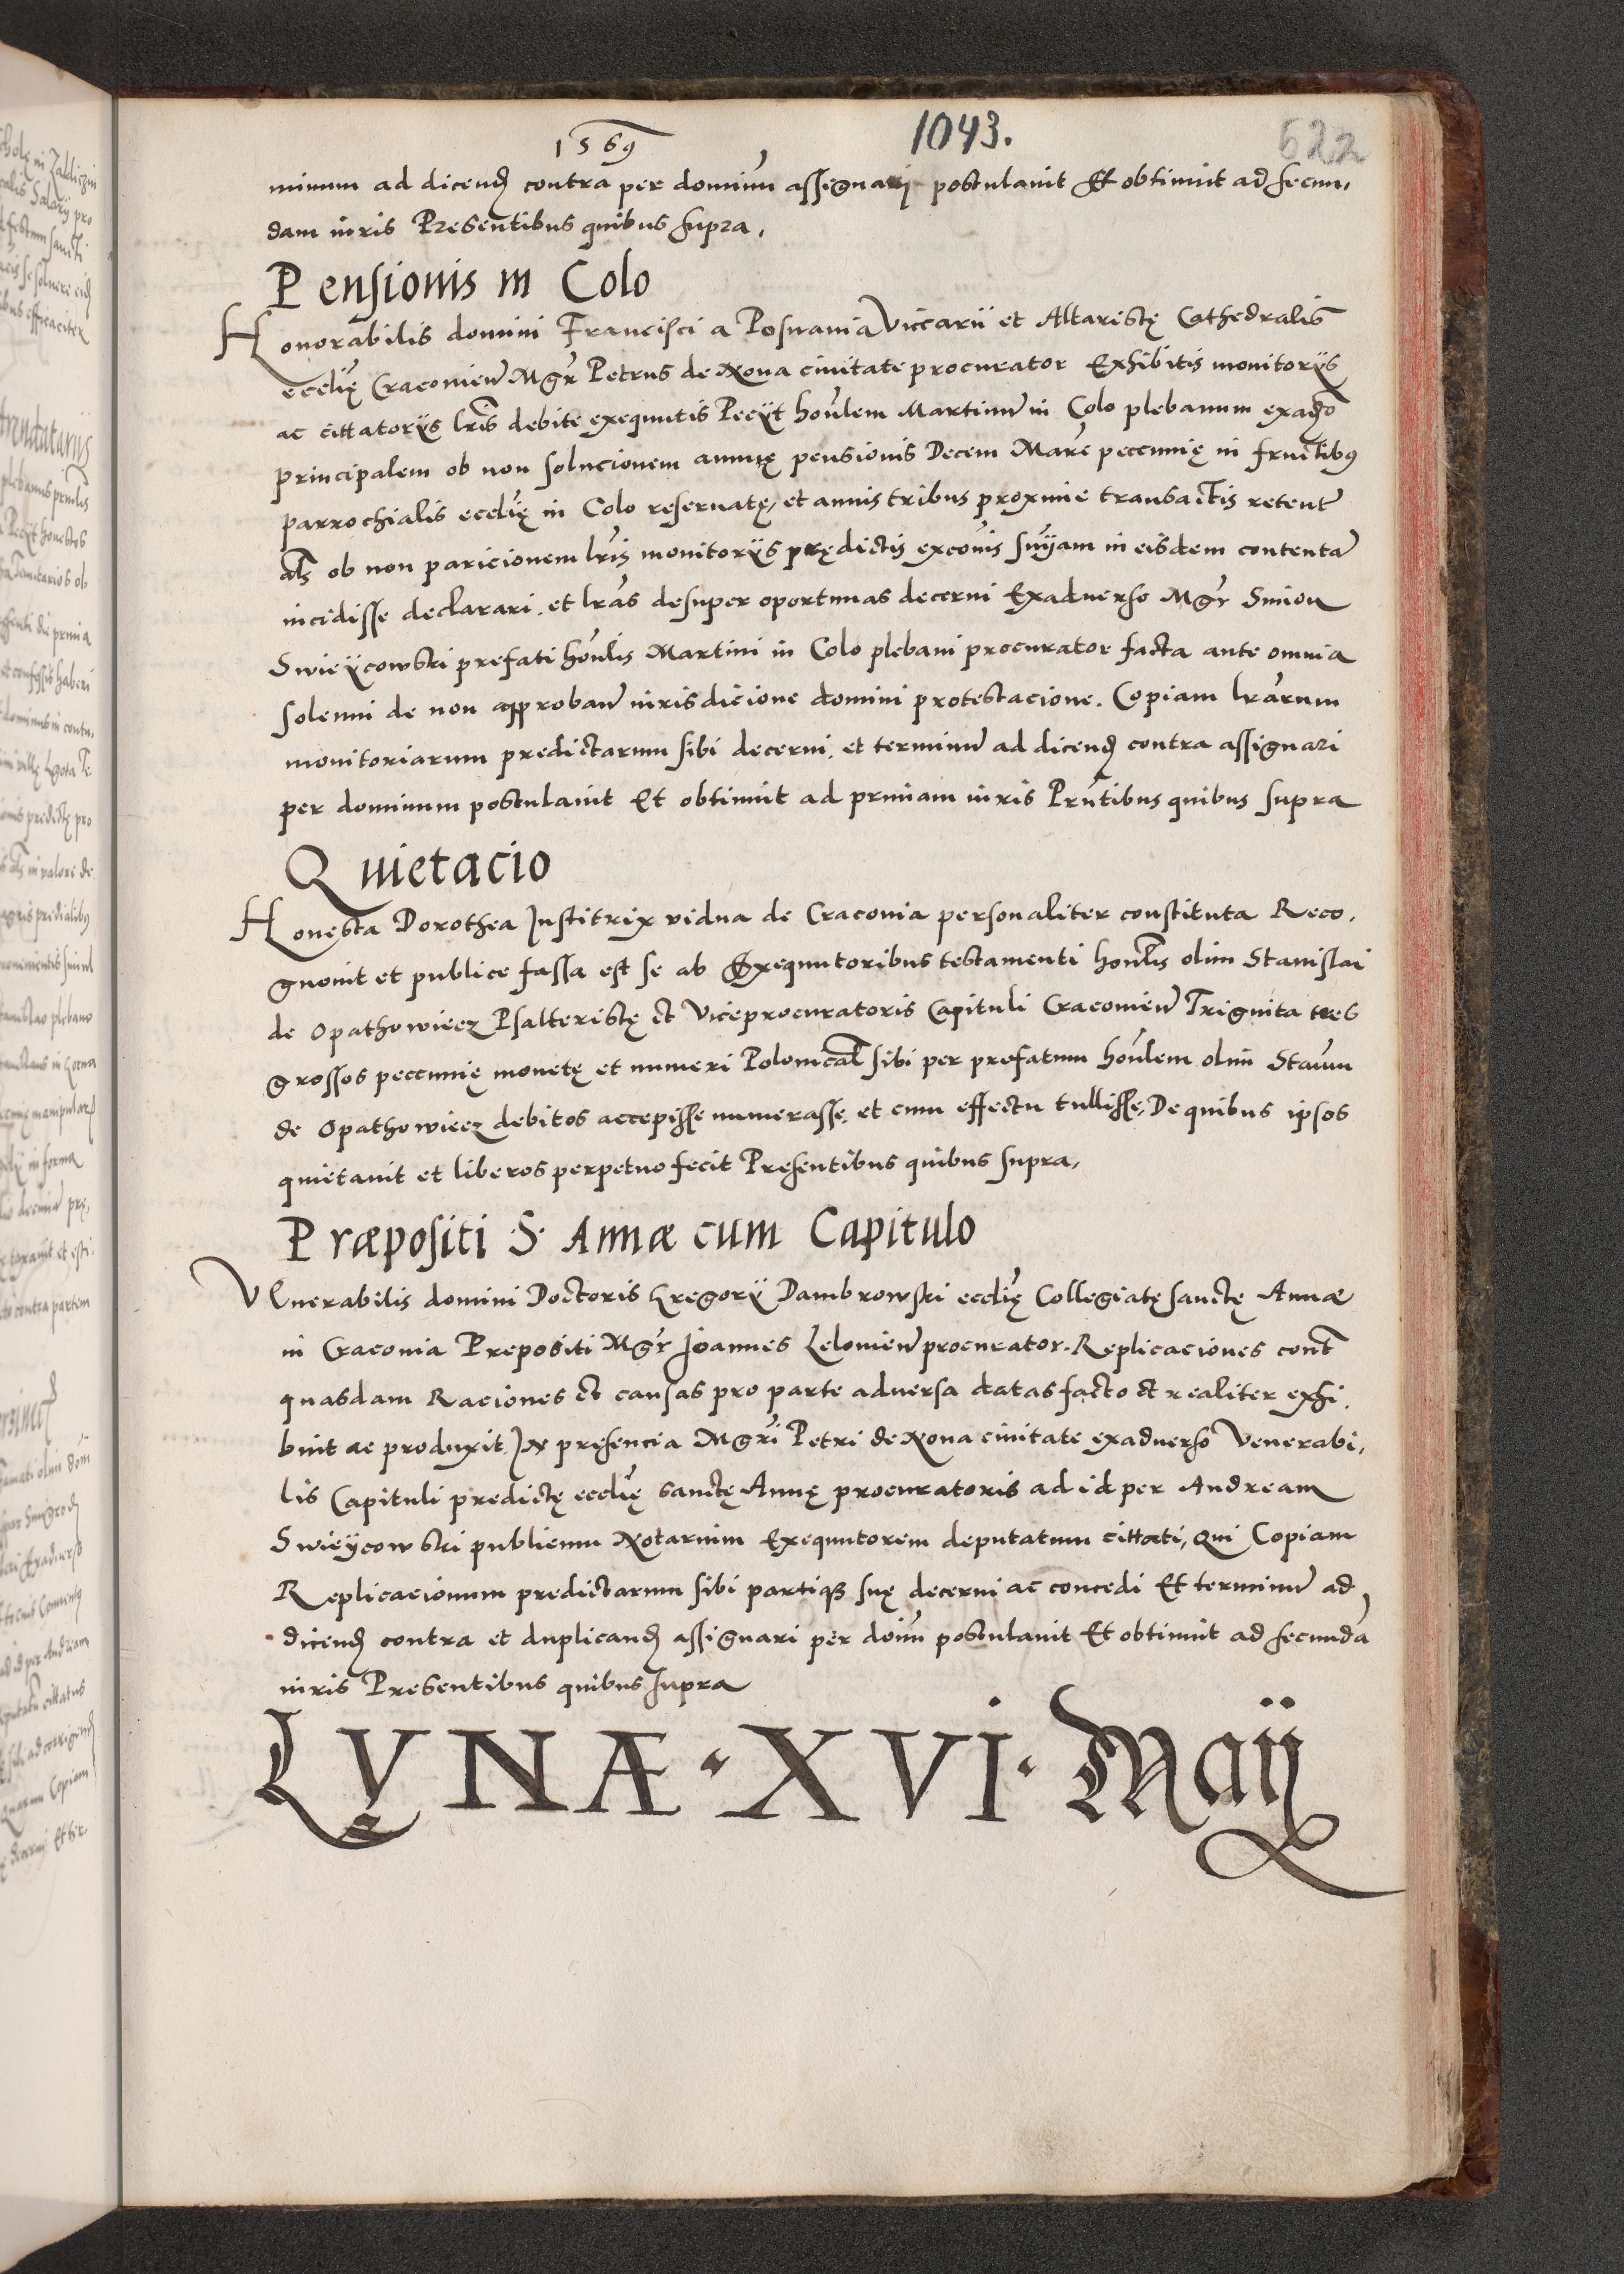 1569
1043.
622
minum ad dicend contra per dominu assignari postulavit Et obtinuit ad secun,
dam iuris Presentibus quibus supra,
Pensionis in Colo
Honorabilis domini Francisci a Posnania Viccarii et Altaristę Cathedralis
ecclię Cracovien Mgr Petrus de Nova civitate procurator Exhibitis monitoriis
ac cittatoriis lris debite exequutis Peciit honlem Martinum in Colo plebanum
principalem ob non solucionem annuę pensionis Decem Marc peccunię in fructibus
parrochialis ecclię in Colo reservatę, et annis tribus proxime transactis retent
als ob non paricionem lris monitoriis prędictis exconis sniam in eisdem contentam
incidisse declarari, et lras desuper oportunas decerni Exadverso Mgr Simon
Swieÿcowski prefati honlis Martini in Colo plebani procurator facta ante omnia
solenni de non approban iurisdicione domini protestacione. Copiam lrarum
monitoriarum predictarum sibi decerni, et terminum ad dicend contra assignari
per dominum postulavit Et obtinuit ad primam iuris Prntibus quibus supra
Quietacio
Honesta Dorothea Institrix vidua de Cracovia personaliter constituta Reco,
gnovit et publice fassa est se ab Exequutoribus testamenti honlis olim Stanislai
de Opathowiecz Psalteristę et Viceprocuratoris Capituli Cracovien Triginta tres
grossos peccunię monetę et numeri Polonical sibi per prefatum honlem olim Staum
de Opathowiecz debitos accepisse numerasse, et cum effectu tullisse, De quibus ipsos
quietavit et liberos perpetuo fecit Presentibus quibus supra,
Præpositi S. Annæ cum Capitulo
Venerabilis domini Doctoris Gregorÿ Dambrowski ecclię Collegiatę sanctę Annæ
in Cracovia Prepositi Mgr Joannes Lelovien procurator. Replicaciones cont
quasdam Raciones et causas pro parte adversa datas facto et realiter exhi,
buit ac produxit, In presencia Mgri Petri de Nova civitate exadverso Venerabi,
lis Capituli predictę ecclię sanctę Annę procuratoris ad id per Andream
Swieÿcowski publicum Notarium Exequutorem deputatum cittati, Qui Copiam
Replicacionum predictarum sibi partique suę decerni ac concedi Et terminum ad
dicend contra et duplicand assignari per doinu postulavit Et obtinuit ad secunda
iuris Presentibus quibus supra
LVNÆ · XVI · Maij